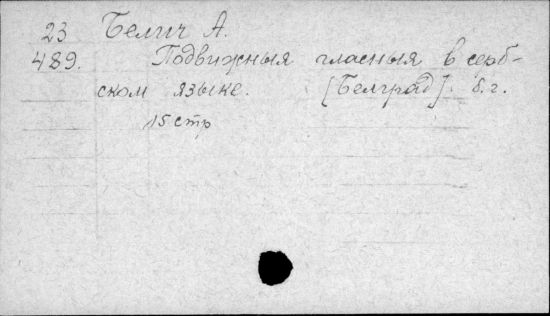 23 Белич А.
489. Подвижныя гласныя в серб-
ском языке. [Белград] б. г.
15 стр